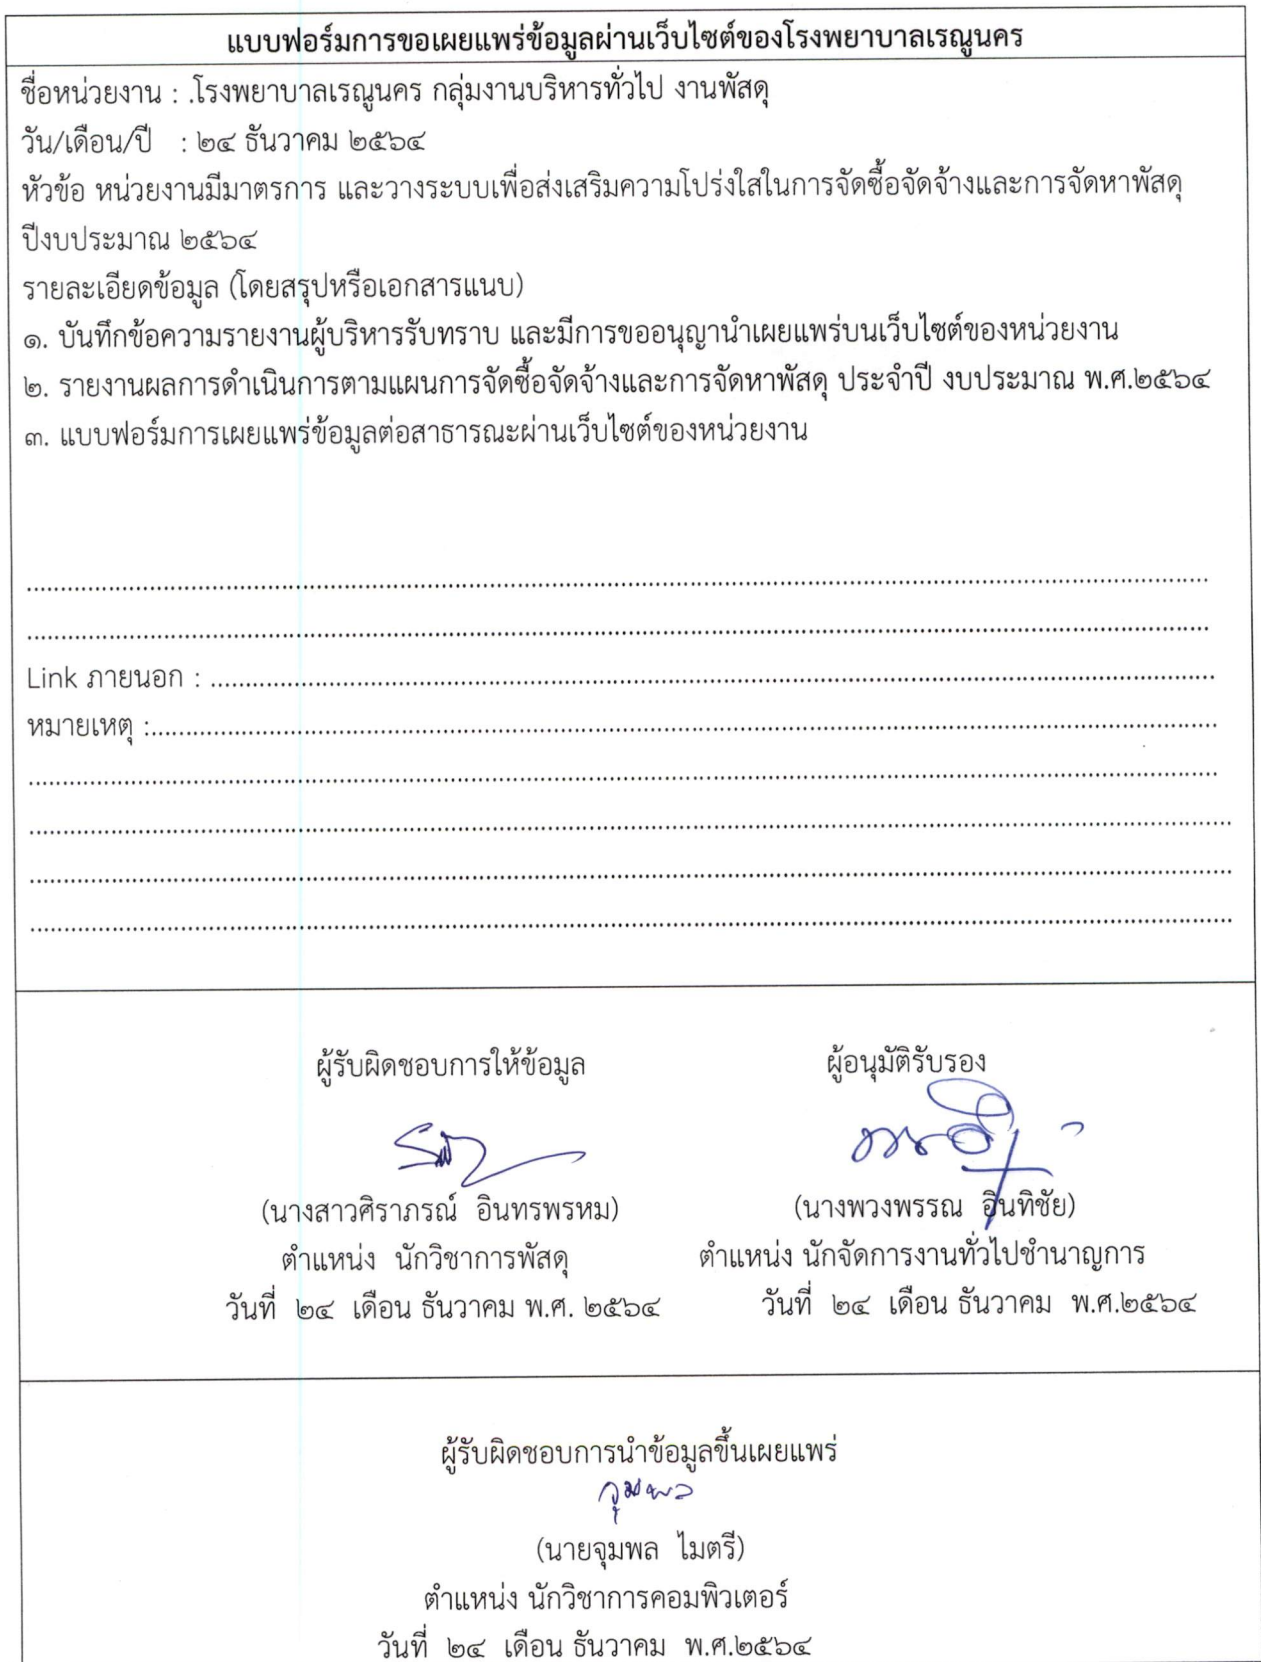 แบบฟอร์มการขอเผยแพร่ข้อมูลผ่านเว็บไซต์ของโรงพยาบาลเรณูนคร
ชื่อหน่วยงาน : .โรงพยาบาลเรณูนคร กลุ่มงานบริหารทั่วไป งานพัสดุ
วัน/เดือน/ปี : ๒๔ ธันวาคม ๒๕๖๔
หัวข้อ หน่วยงานมีมาตรการ และวางระบบเพื่อส่งเสริมความโปร่งใสในการจัดซื้อจัดจ้างและการจัดหาพัสดุ
ปีงบประมาณ ๒๕๖๔
รายละเอียดข้อมูล (โดยสรุปหรือเอกสารแนบ)
๑. บันทึกข้อความรายงานผู้บริหารรับทราบ และมีการขออนุญานำเผยแพร่บนเว็บไซต์ของหน่วยงาน
๒. รายงานผลการดำเนินการตามแผนการจัดซื้อจัดจ้างและการจัดหาพัสดุ ประจำปี งบประมาณ พ.ศ.๒๕๖๔
๓. แบบฟอร์มการเผยแพร่ข้อมูลต่อสาธารณะผ่านเว็บไซต์ของหน่วยงาน
Link ภายนอก : ........................................
หมายเหตุ :........................................
ผู้รับผิดชอบการให้ข้อมูล ผู้อนุมัติรับรอง
(นางสาวศิราภรณ์ อินทรพรหม) (นางพวงพรรณ อินทิชัย)
ตำแหน่ง นักวิชาการพัสดุ ตำแหน่ง นักจัดการงานทั่วไปชำนาญการ
วันที่ ๒๔ เดือน ธันวาคม พ.ศ. ๒๕๖๔ วันที่ ๒๔ เดือน ธันวาคม พ.ศ.๒๕๖๔
ผู้รับผิดชอบการนำข้อมูลขึ้นเผยแพร่
จุมพล
(นายจุมพล ไมตรี)
ตำแหน่ง นักวิชาการคอมพิวเตอร์
วันที่ ๒๔ เดือน ธันวาคม พ.ศ.๒๕๖๔